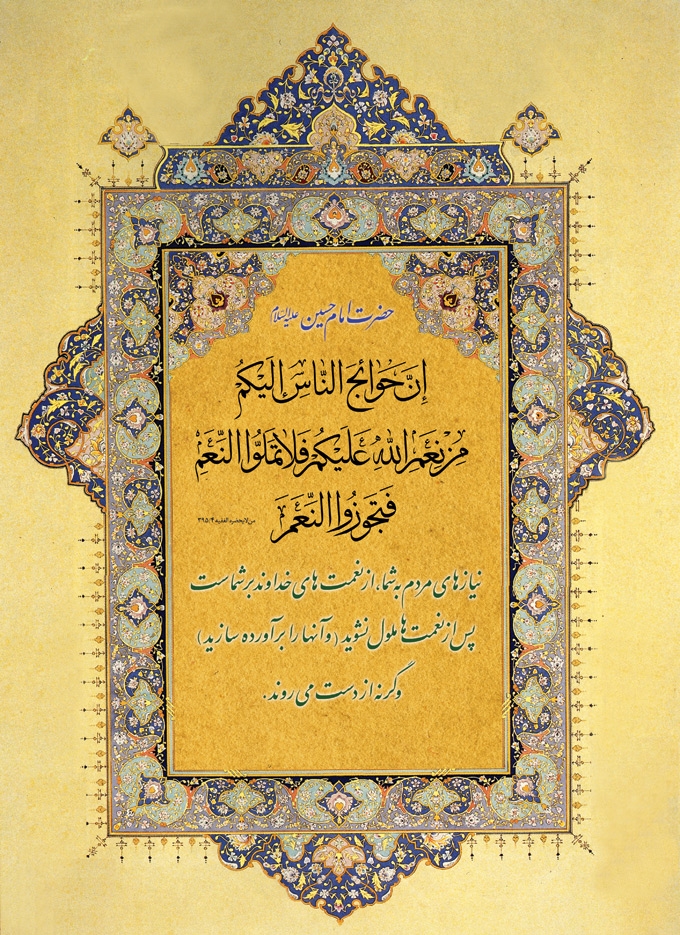 حضرت امام حسین علیه‌السلام
إنَّ حَوائِجَ النّاسِ إلَیْکُمْ
مِنْ نِعَمِ اللهِ عَلَیْکُمْ فَلا تَمَلُّوا النِّعَمَ
فَتَجُوزُوا النِّعَمَ
من لایحضره الفقیه ۳۹۵/۴
نیازهای مردم به شما، از نعمت های خداوند بر شماست
پس از نعمت ها ملول نشوید (و آنها را برآورده سازید)
وگرنه از دست می روند.